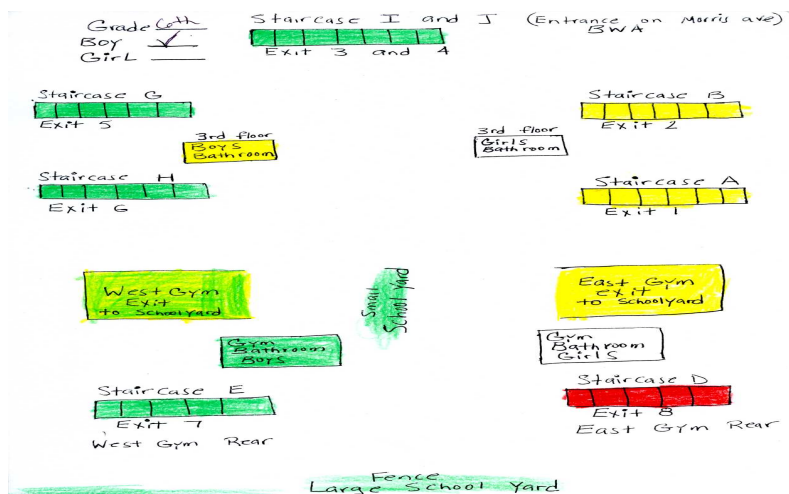 Grade 6th
Boy ✓
Girl
Staircase I and J (Entrance on Morris ave)
BWA
Exit 3 and 4
Staircase G
Exit 5
Staircase B
Exit 2
3rd floor
Boys
Bathroom
3rd floor
Girls
Bathroom
Staircase H
Exit 6
Staircase A
Exit 1
West Gym
Exit
to Schoolyard
Small
School Yard
East Gym
exit
to Schoolyard
Gym
Bathroom
Boys
Gym
Bathroom
Girls
Staircase E
Exit 7
West Gym Rear
Staircase D
Exit 8
East Gym Rear
Fence
Large School Yard